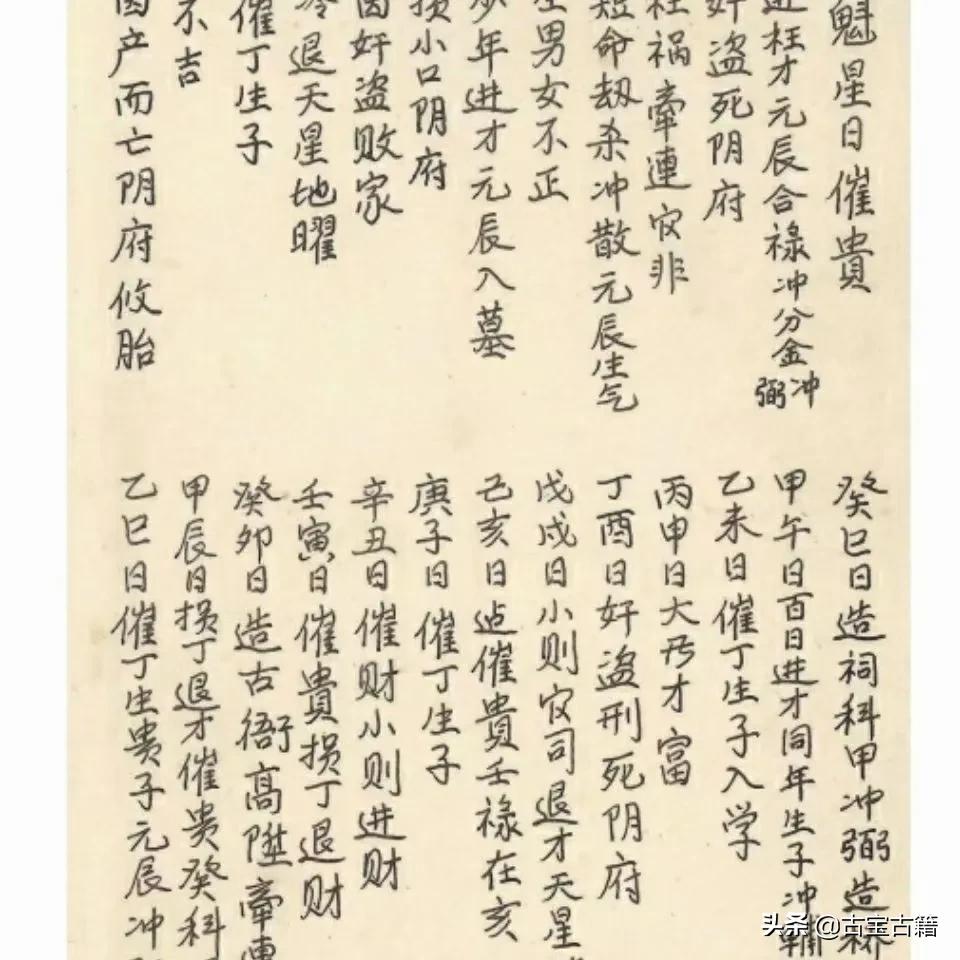 魁星日催貴
进枉才元辰合禄冲分金冲弼
奸盗死阴府
枉祸牵連灾非
短命劫杀冲散元辰生气
生男女不正
少年进才元辰入墓
损小口阴府
因奸盗败家
冷退天星地曜
催丁生子
不吉
因产而亡阴府攸胎
癸巳日造祠科甲冲弼造桥
甲午日百日进才同年生子冲輔
乙未日催丁生子入学
丙申日大旺才富
丁酉日奸盗刑死阴府
戊戌日小则灾司退才天星
己亥日造催貴壬禄在亥
庚子日催丁生子
辛丑日催财小则进财
壬寅日催貴損丁退财
癸卯日造古衙高陞牽連
甲辰日損丁退才催贵癸科
乙巳日催丁生贵子元辰冲
头条 @古宝古籍